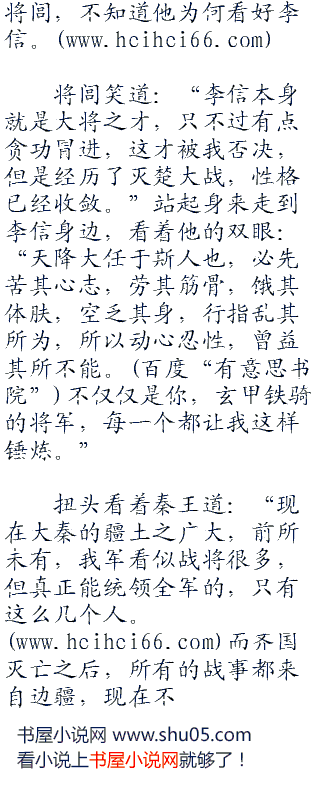 将闾，不知道他为何看好李
信。(www.hcihci66.com)
将闾笑道：“李信本身
就是大将之才，只不过有点
贪功冒进，这才被我否决，
但是经历了灭楚大战，性格
已经收敛。”站起身来走到
李信身边，看着他的双眼：
“天降大任于斯人也，必先
苦其心志，劳其筋骨，饿其
体肤，空乏其身，行指乱其
所为，所以动心忍性，曾益
其所不能。(百度“有意思书
院”)不仅仅是你，玄甲铁骑
的将军，每一个都让我这样
锤炼。”
扭头看着秦王道：“现
在大秦的疆土之广大，前所
未有，我军看似战将很多，
但真正能统领全军的，只有
这么几个人。
(www.hcihci66.com)而齐国
灭亡之后，所有的战事都来
自边疆，现在不
书屋小说网 www.shu05.com
看小说上书屋小说网就够了！